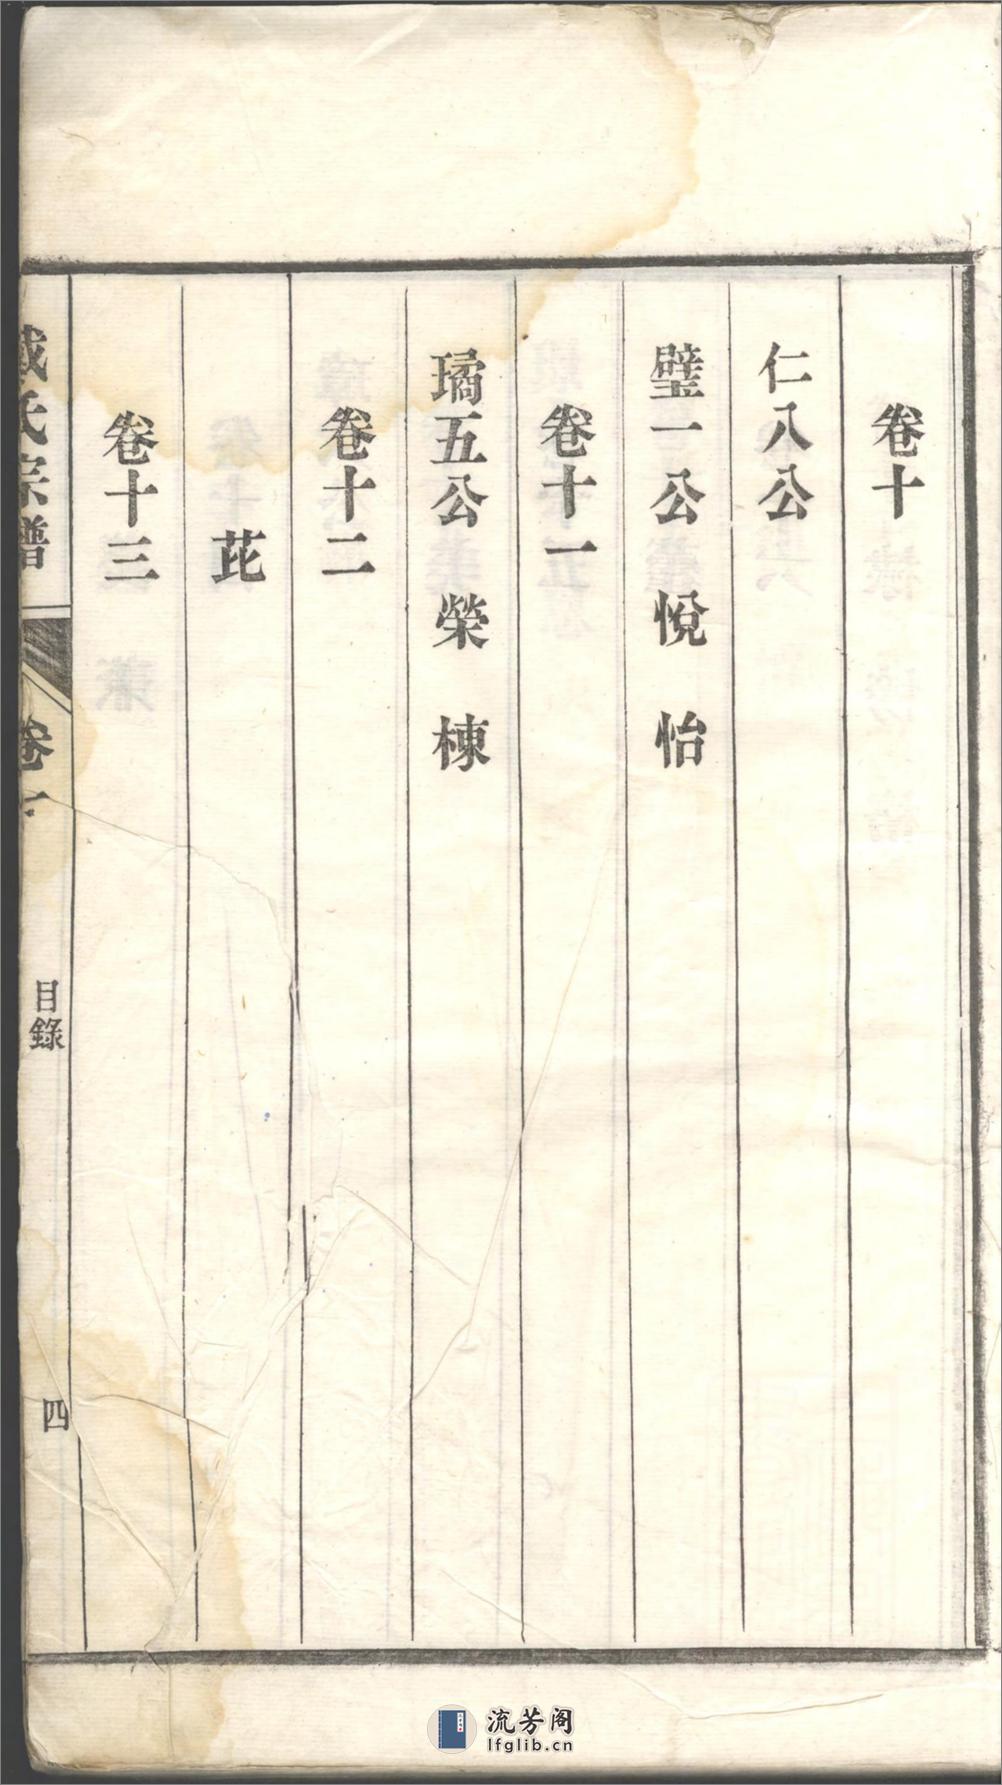 卷十
仁八公
璧一公 悅 怡
卷十一
璚五公 榮 棟
卷十二
芘
卷十三
氏宗譜
卷
目錄
四
流芳阁
lfglib.cn